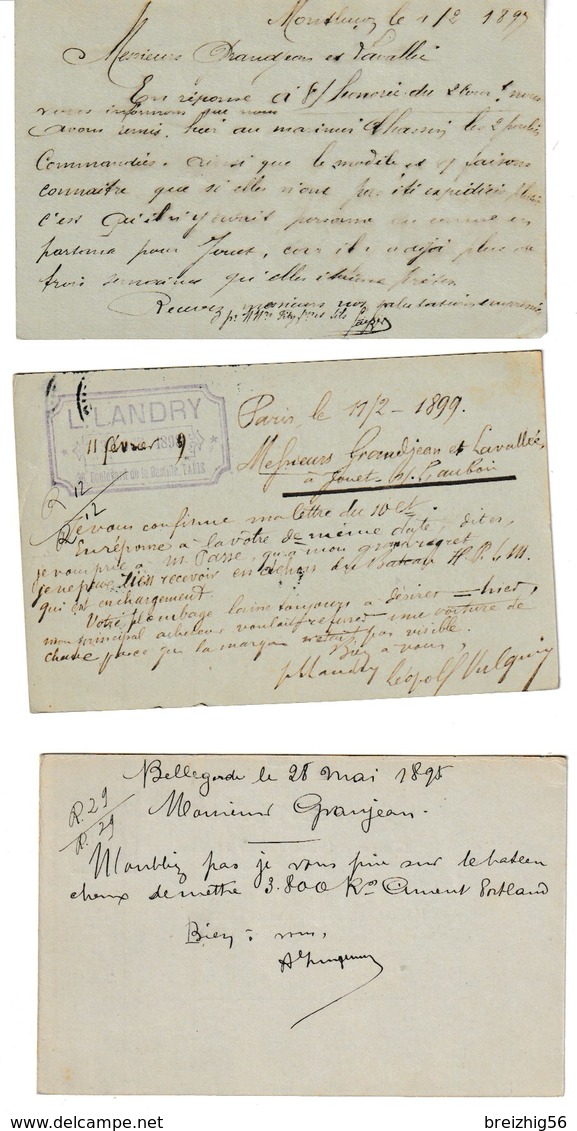 Montluçon le 1/2 1899
Messieurs Grandjean et Lavallée
En réponse à V/ honorée du nous
vous informons que nous
avons remis hier au marinier les 2
Commandées ainsi que le modèle et faisons
connaître que si elles n'ont pas été expédiées
c'est qu'il n'y avait personne
partance pour Jouet, car il y a déjà plus de
trois semaines qu'elles étaient prêtes
Recevez messieurs nos salutations
L. LANDRY
11 février 1899
Boulevard de la Bastille, PARIS
Paris, le 11/2 - 1899.
Messieurs Grandjean et Lavallée,
à Jouet s/ l'Aubois
R 12
R. 12
Je vous confirme ma lettre du 10 ct.
En réponse à la vôtre de même date, dites,
je vous prie à M. Passe, qu'à mon grand regret
je ne puis rien recevoir en dehors du bateau H. P. & M.
qui est en chargement.
Votre plombage laisse toujours à désirer — hier,
mon principal acheteur voulait refuser une voiture de
chaux parce que la marque n'était pas visible.
Bien à vous,
p Landry Léopold
Bellegarde le 28 mai 1895
R. 29
R. 29
Monsieur Granjean.
N'oubliez pas je vous prie sur le bateau
chaux de mettre 3.800 Kos Ciment Portland
Bien à vous,
breizhig56